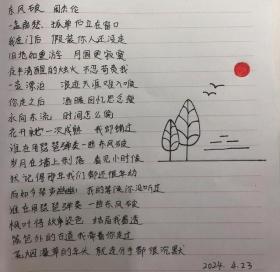 东风破 周杰伦
一盏离愁 孤单伫立在窗口
我在门后 假装你人还没走
旧地如重游 月圆更寂寞
夜半清醒的烛火 不忍苛责我
一壶漂泊 浪迹天涯难入喉
你走之后 酒暖回忆思念瘦
水向东流 时间怎么偷
花开就一次成熟 我却错过
谁在用琵琶弹奏 一曲东风破
岁月在墙上剥落 看见小时候
犹记得那年我们都还很年幼
而如今琴声幽幽 我的等候你没听过
谁在用琵琶弹奏 一曲东风破
枫叶将故事染色 结局我看透
篱笆外的古道我牵着你走过
荒烟漫草的年头 就连分手都很沉默
2024.4.23